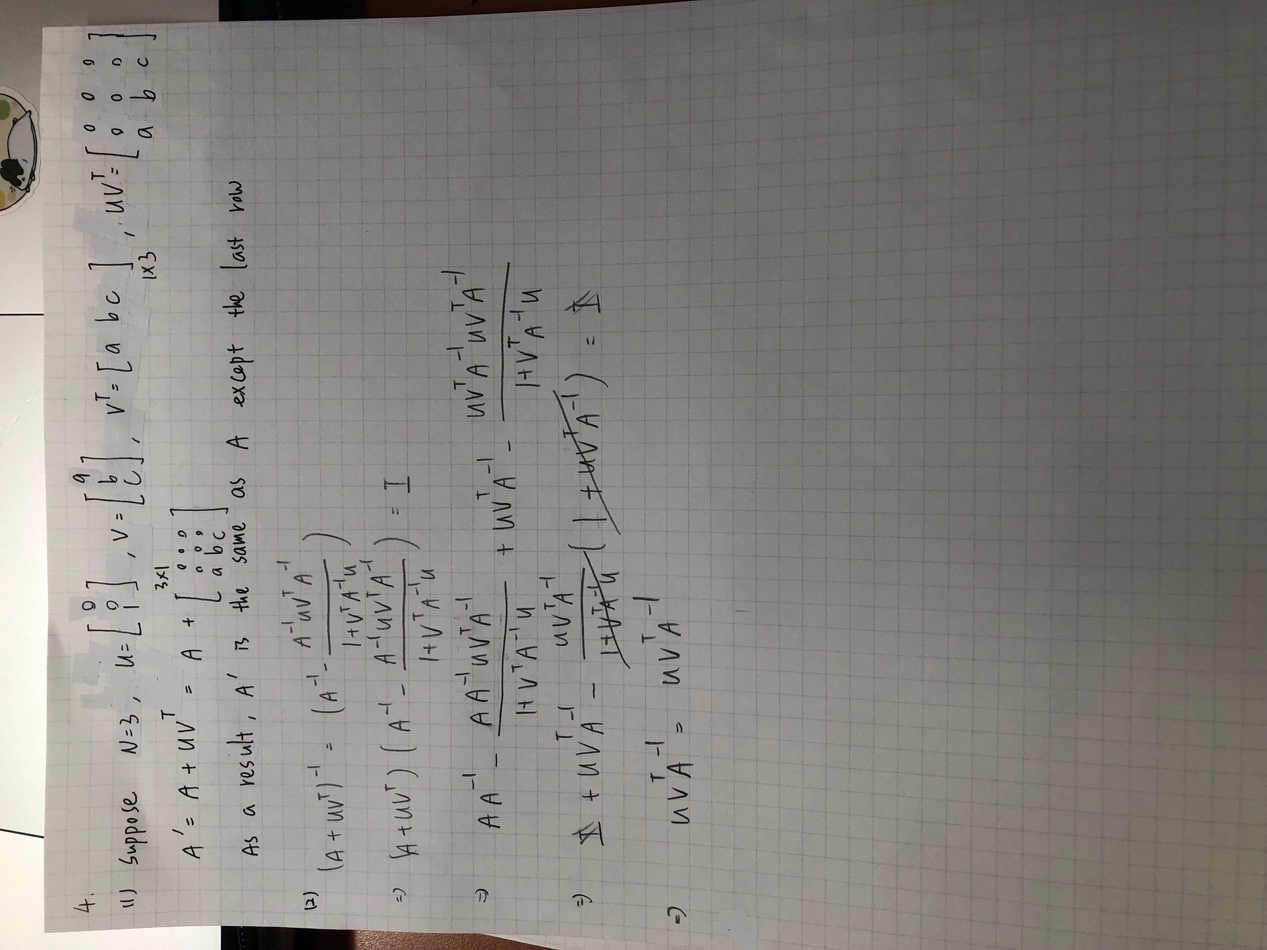 4.
(1) Suppose N=3, u=[0 0 1], v=[a b c], vᵀ=[a b c]1×3, uvᵀ=[0 0 0 0 0 0 a b c]
3×1
A' = A + uvᵀ = A + [0 0 0 0 0 0 a b c]
As a result, A' is the same as A except the last row
(2) (A+uvᵀ)⁻¹ = (A⁻¹ - A⁻¹uvᵀA⁻¹ / 1+vᵀA⁻¹u)
=) (A+uvᵀ)(A⁻¹ - A⁻¹uvᵀA⁻¹ / 1+vᵀA⁻¹u) = I
=) AA⁻¹ - AA⁻¹uvᵀA⁻¹ / 1+vᵀA⁻¹u + uvᵀA⁻¹ - uvᵀA⁻¹uvᵀA⁻¹ / 1+vᵀA⁻¹u
=) I + uvᵀA⁻¹ - uvᵀA⁻¹ / 1+vᵀA⁻¹u (1+uvᵀA⁻¹) = I
=) uvᵀA⁻¹ = uvᵀA⁻¹